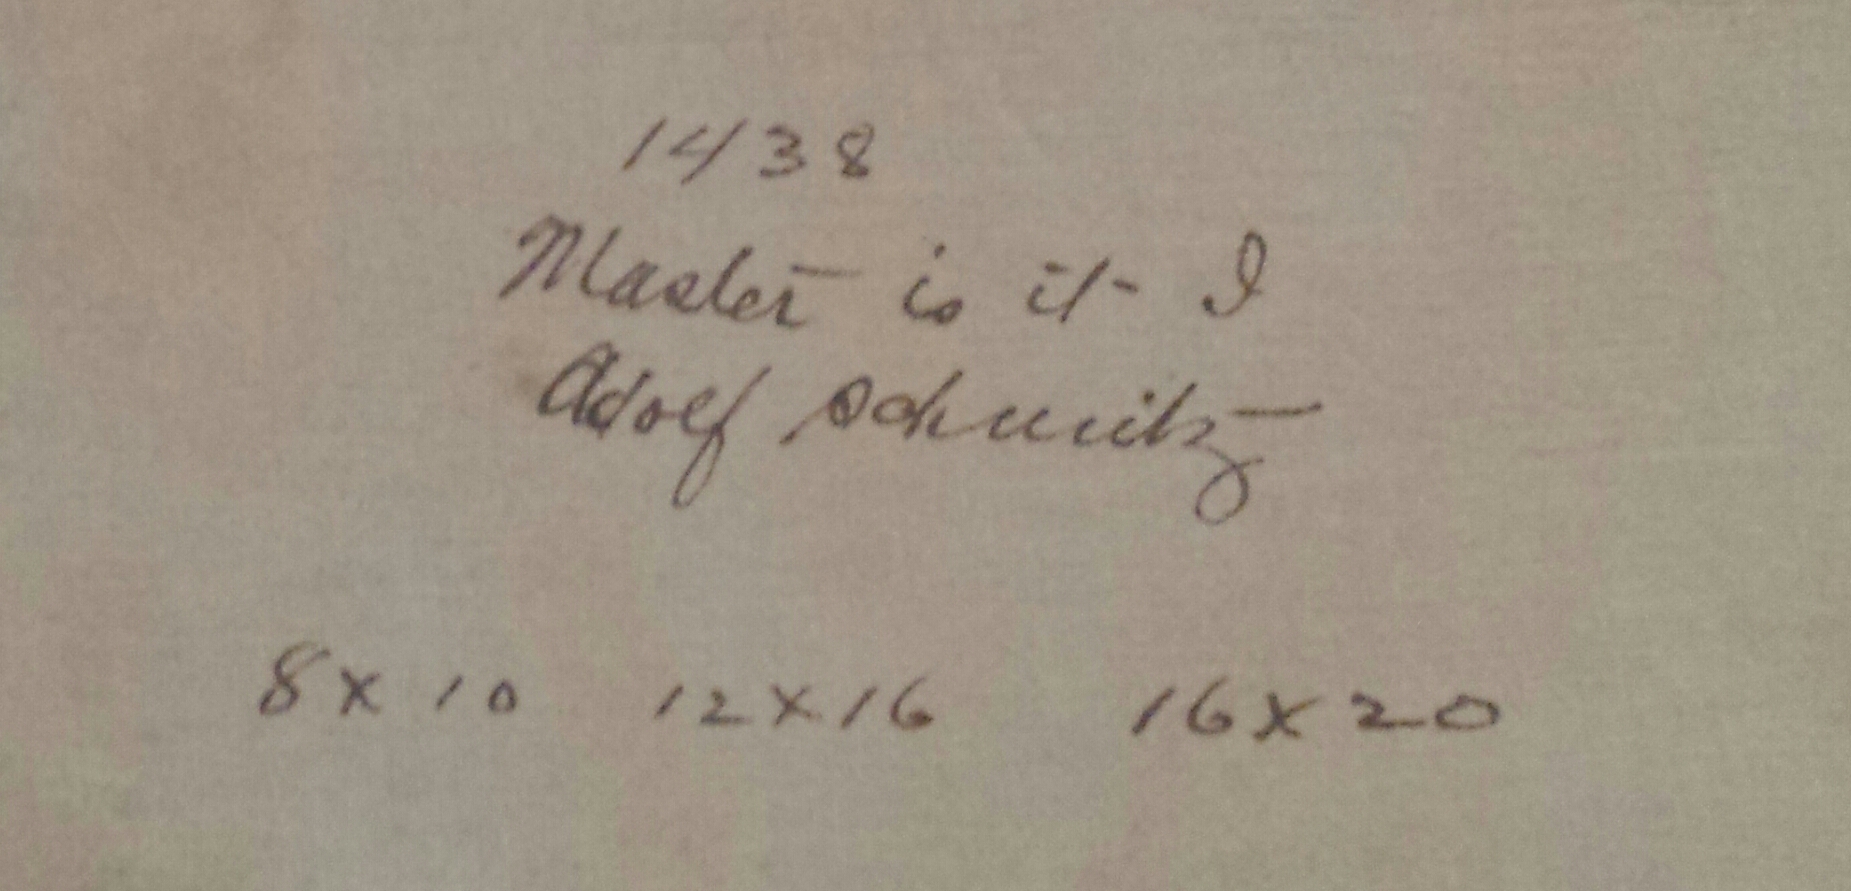 1438
Master is it I
Adolf Schmitz
8 x 10 12 x 16 16 x 20